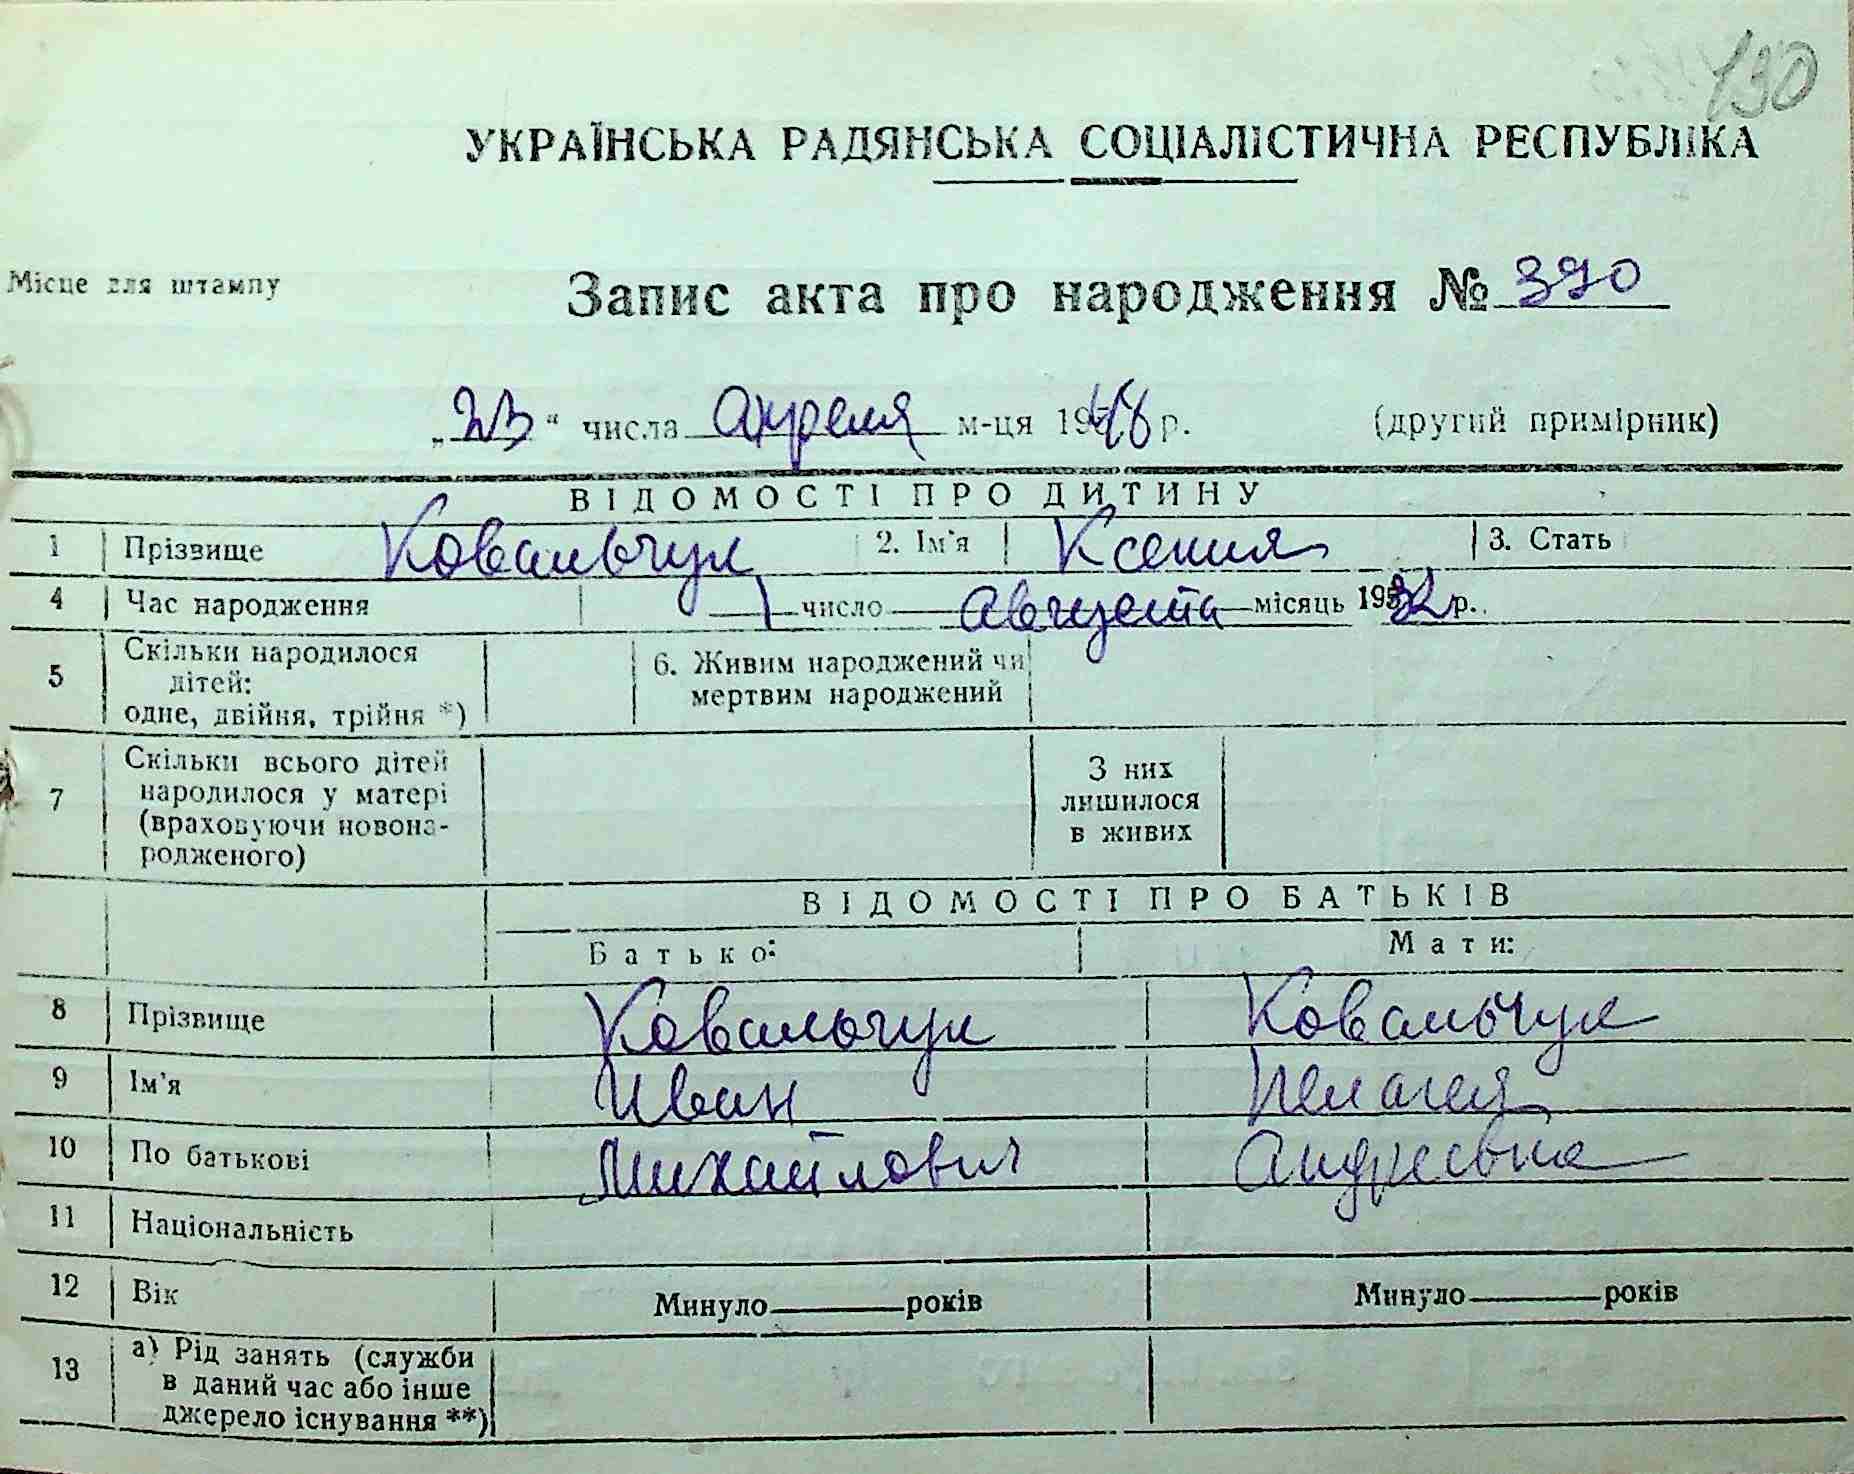 190
УКРАЇНСЬКА РАДЯНСЬКА СОЦІАЛІСТИЧНА РЕСПУБЛІКА
Місце для штампу
Запис акта про народження № 390
„23“ числа Апреля м-ця 1948 р. (другий примірник)
ВІДОМОСТІ ПРО ДИТИНУ
1 Прізвище Ковальчук 2. Ім'я Ксения 3. Стать
4 Час народження 1 число Августа місяць 1932 р.
5 Скільки народилося дітей: одне, двійня, трійня *) 6. Живим народжений чи мертвим народжений
7 Скільки всього дітей народилося у матері (враховуючи новона-родженого) З них лишилося в живих
ВІДОМОСТІ ПРО БАТЬКІВ
Батько: Мати:
8 Прізвище Ковальчук Ковальчук
9 Ім'я Иван Пелагея
10 По батькові Михайлович Андреевна
11 Національність
12 Вік Минуло років Минуло років
13 а) Рід занять (служби в даний час або інше джерело існування **)